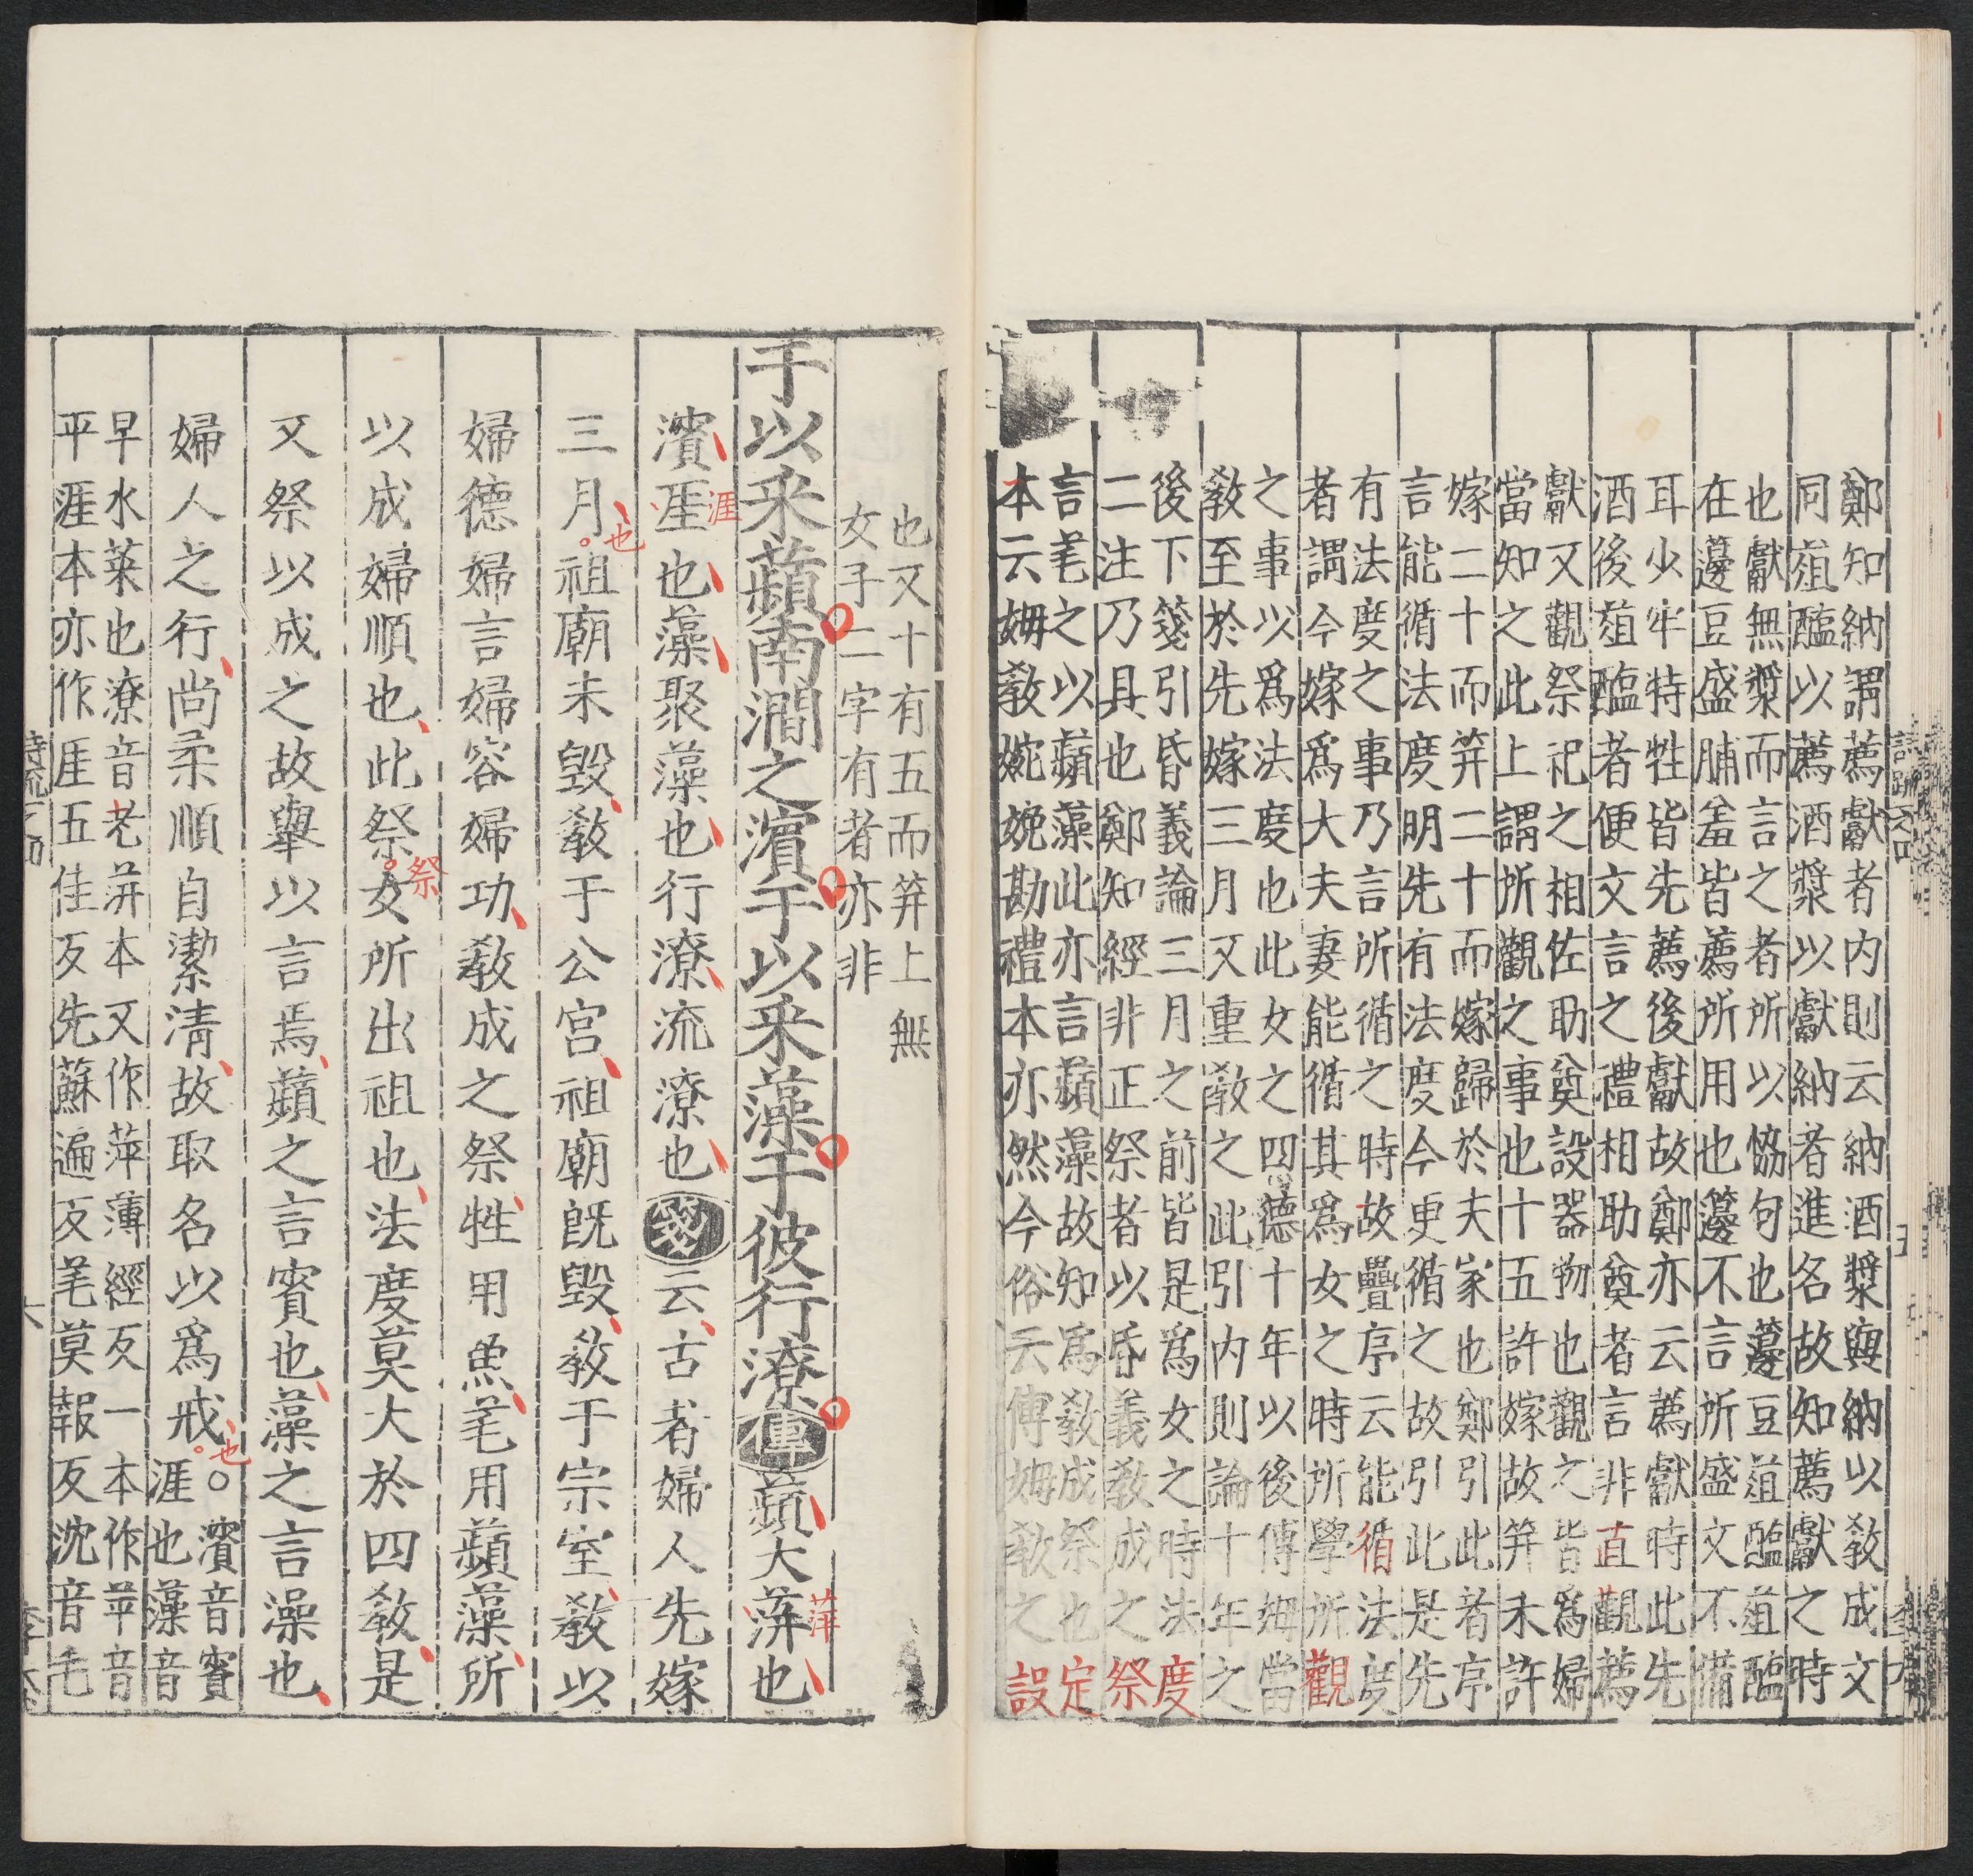 鄭知納謂薦獻者内則云納酒漿與納以敎成文
同葅醢以薦酒漿以獻納者進名故知薦獻之時
也獻無漿而言之者所以恊句也籩豆葅醢葅醢
在籩豆盛脯羞皆薦所用也籩不言所盛文不備
耳少牢特牲皆先薦後獻故鄭亦云薦獻時此先
酒後葅醢者便文言之禮相助奠者言非直觀薦
獻又觀祭祀之相佐助奠設器物也觀之皆爲婦
當知之此上謂所觀之事也十五許嫁故笄未許
嫁二十而笄二十而嫁歸於夫家也鄭引此者序
言能循法度明先有法度今更循之故引此是先
有法度之事乃言所循之時故疊序云能循法度
者謂今嫁爲大夫妻能循其爲女之時所學所觀
之事以爲法度也此女之四德十年以後傅姆當
敎至於先嫁三月又重敎之此引内則論十年之
後下箋引昏義論三月之前皆是爲女之時法度
二注乃具也鄭知經非正祭者以昏義敎成之祭
言芼之以蘋藻此亦言蘋藻故知爲敎成祭也定
本云姆敎婉娩勘禮本亦然今俗云傅姆敎之設
也又十有五而笄上無
女子二字有者亦非
于以采蘋南澗之濱于以采藻于彼行潦傳蘋大蓱也萍
濱厓也藻聚藻也行潦流潦也箋云古者婦人先嫁
涯
三月祖廟未毀敎于公宮祖廟旣毀敎于宗室敎以
也
婦德婦言婦容婦功敎成之祭牲用魚芼用蘋藻所
以成婦順也此祭女所出祖也法度莫大於四敎是
祭
又祭以成之故舉以言焉蘋之言賓也藻之言澡也
婦人之行尚柔順自潔清故取名以爲戒○濱音賓
也
涯也藻音
早水菜也潦音老蓱本又作萍薄經反一本作苹音
平涯本亦作厓五佳反先蘇遍反芼莫報反沈音毛